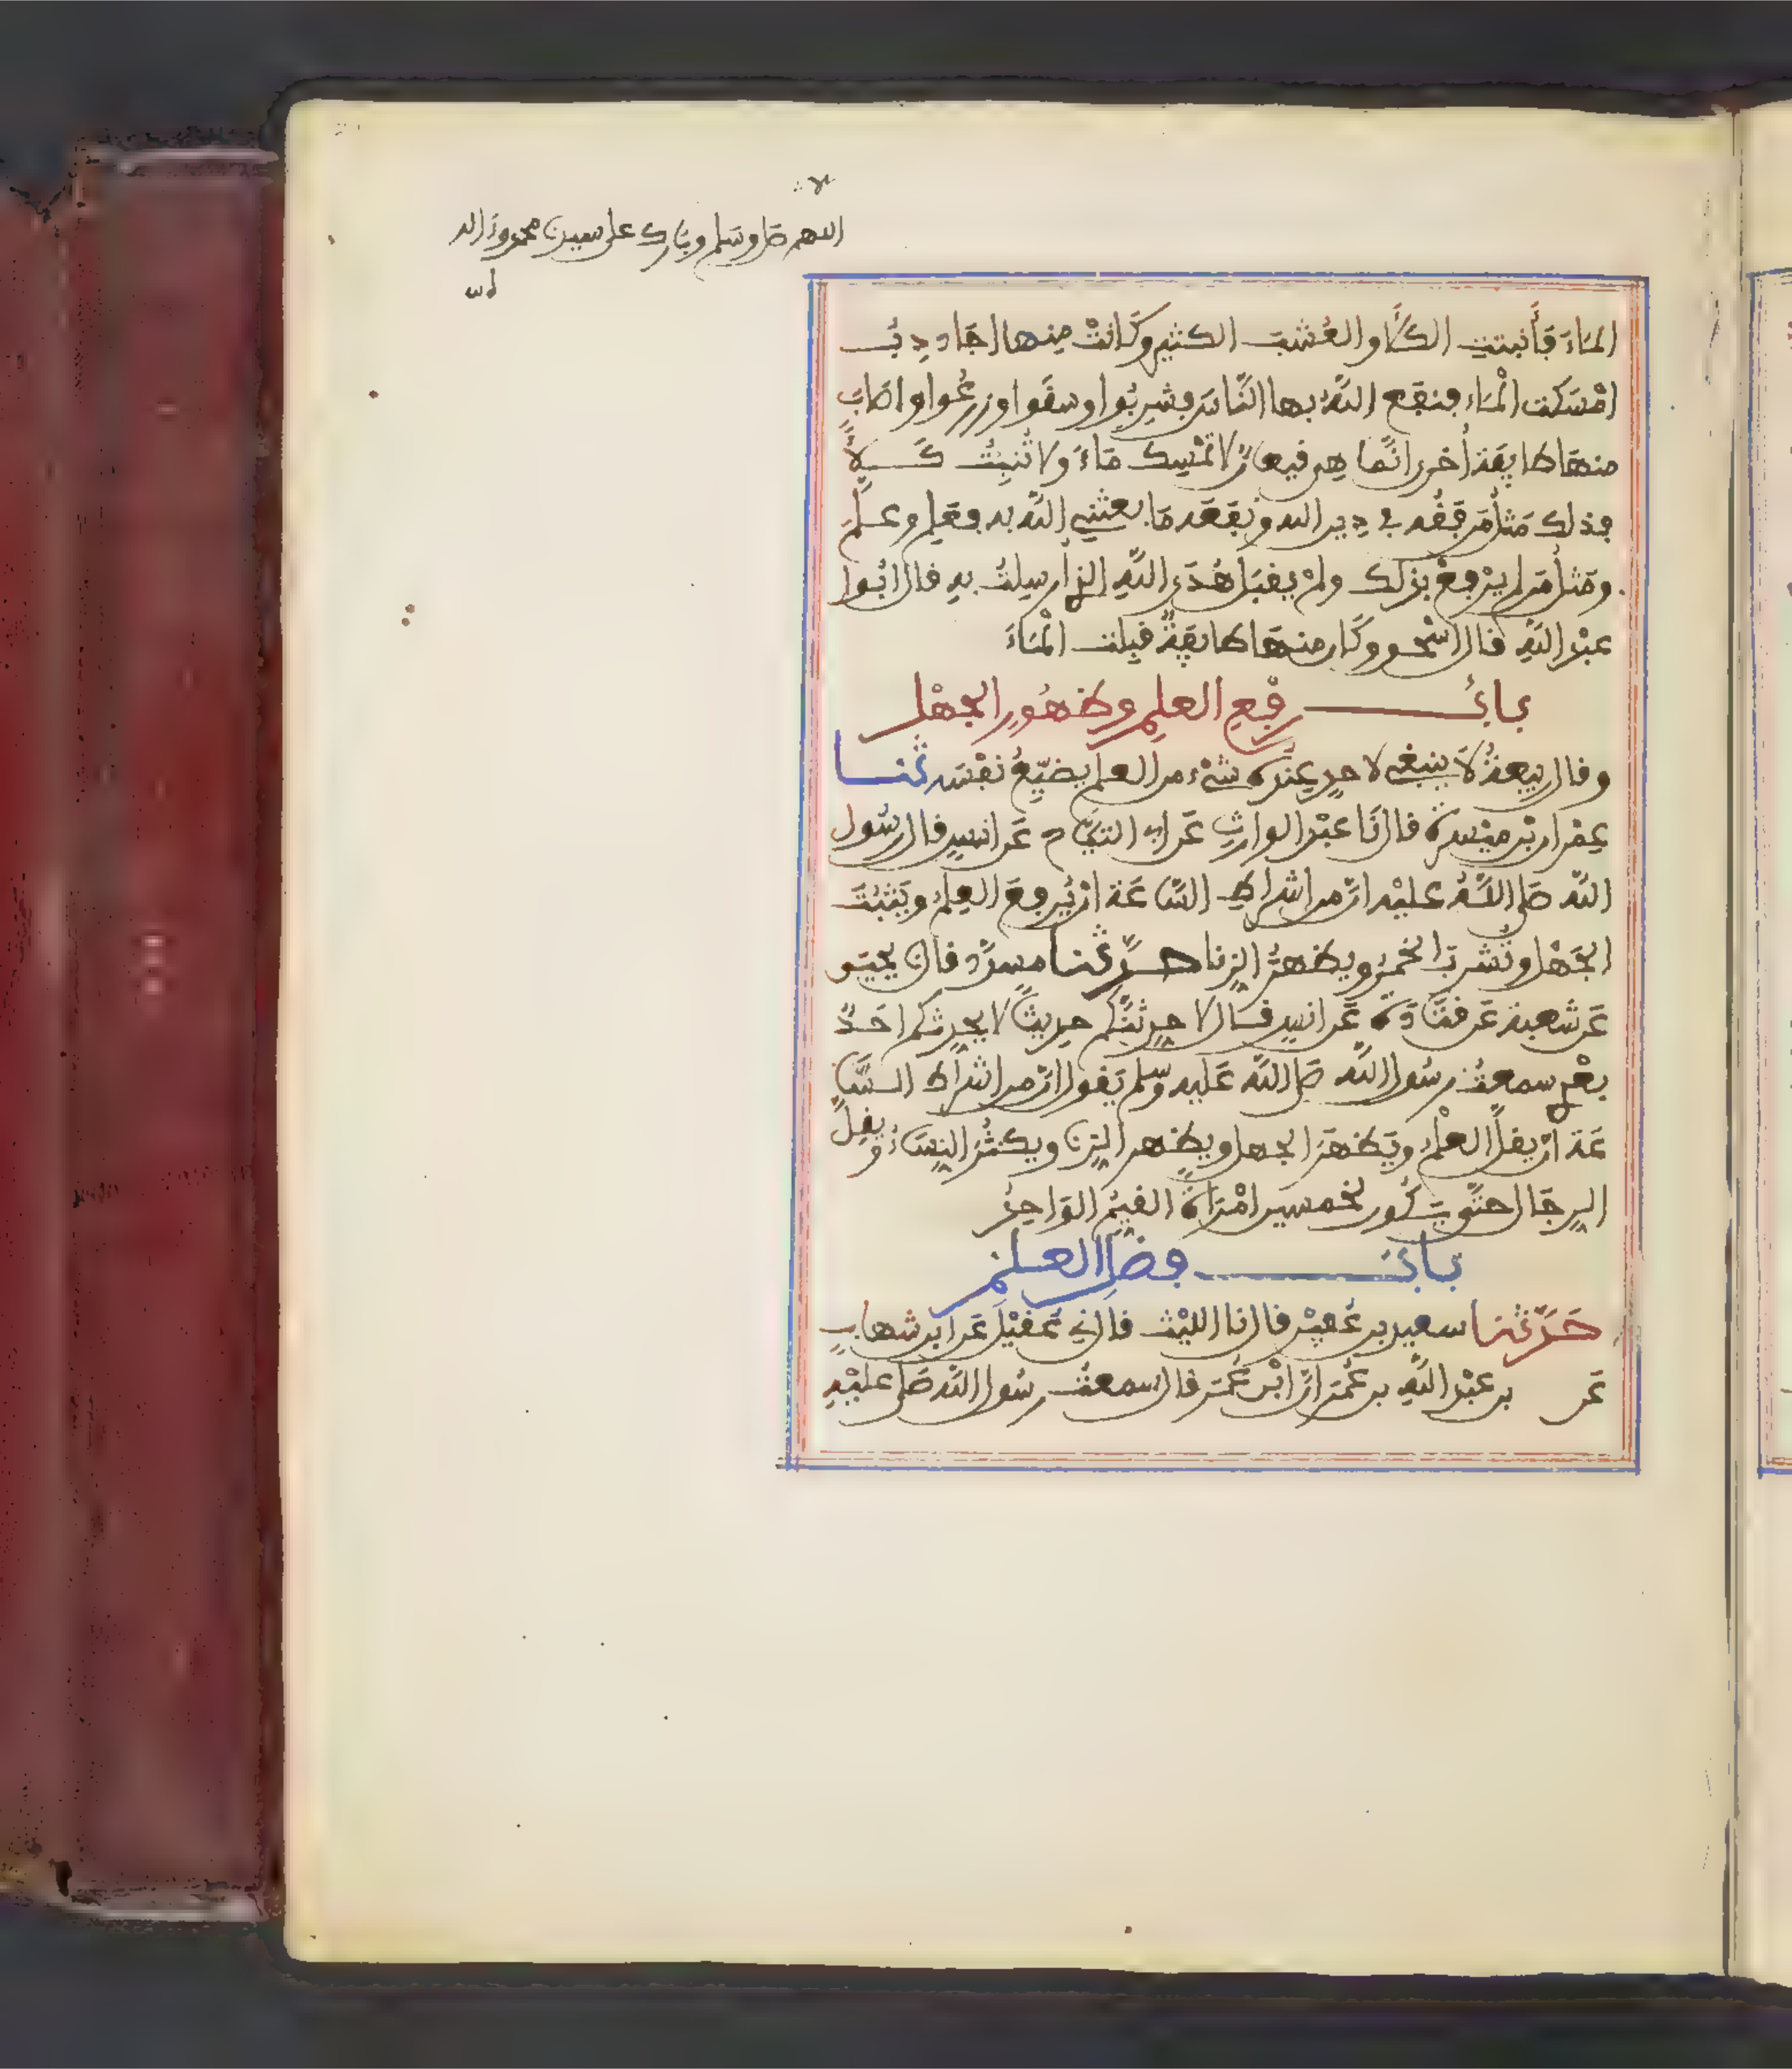 اللهم صل وسلم وبارك على سيدنا محمد وءاله
الماءَ فأنبتتِ الكلأ والعُشبَ الكثير وكانتْ منها اجادِبُ
امْسَكت الْماء فنفع اللهُ بها النَّاسَ فشربُوا وسقَوا وزرعُوا واصَابَ
منها طايفة أخرى انَّما هي قيعانٌ لا تمْسِك مَاءً ولا تُنبِتُ كَلأً
فذلك مَثلُ مَن فَقُه في دِين الله ونفَعَه مَا بعثني اللهُ به فعَلِم وعلَّمَ
ومَثلُ مَن لم يرْفعْ بذلك ولمْ يقبَل هُدَى اللهِ الذي أرسِلتُ بهِ قال ابُوا
عبْد اللهِ قال اسْحٰق وكَان منها طايفةٌ قيلت الْمَاءَ
بابُ رفْعِ العلمِ وظهُورِ الجهْل
وقال ربيعةُ لَا ينبغي لاحدٍ عندَه شيْء من العلم يضيّعُ نفْسَه ثنا
عِمْران بْن ميْسرَة قال نَا عبْد الوارثِ عَن ابي التيَّاح عَن انسٍ قال رسُول
الله صَلى اللهُ عليْه انّ من اشراطِ السَّاعَة انْ يُرفعَ العِلمُ ويَثبُتَ
الجَهْل وتُشربَ الخمْرُ ويظهَرُ الزنا حدَّثنا مسدَّد قال نا يحيَى
عَن شعبة عَن قتَادَةَ عَن انسٍ قال لا حدِثنَّكم حدِيثًا لا يحدِثكم احَدٌ
بعْدِي سمعتُ رسُول اللهِ صَلى الله عَليه وسلم يَقول انّ من اشراط السَّا
عَة انْ يقلَّ العلْمُ ويَظهَرَ الجهل ويظهر الزنا ويكثُرَ النِسَاءُ ويقلَّ
الرجَال حتَّى يَكُون لخمسين امْرَاةً القيمُ الوَاحِدُ
بابُ فضْلِ العلم
حَدَّثنا سعيد بن عُفيْر قال نا الليْث قال ني عُقيْل عَن ابن شهابٍ
عَن بن عبْد اللهِ بن عُمَر انّ ابْن عُمَر قال سمعتُ رسُول الله صَلى عليْهِ